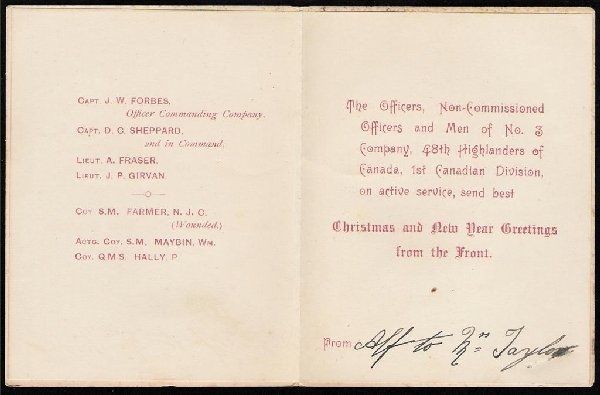 CAPT. J. W. FORBES,
Officer Commanding Company.
CAPT. D. C. SHEPPARD,
2nd in Command.
LIEUT. A. FRASER.
LIEUT. J. P. GIRVAN.
COY S.M. FARMER, N. J. C.
(Wounded.)
ACTG. COY. S.M. MAYBIN, WM.
COY. Q.M.S. HALLY, P.
The Officers, Non-Commissioned
Officers and Men of No. 3
Company, 48th Highlanders of
Canada, 1st Canadian Division,
on active service, send best
Christmas and New Year Greetings
from the Front.
From Alf to Mrs Taylor